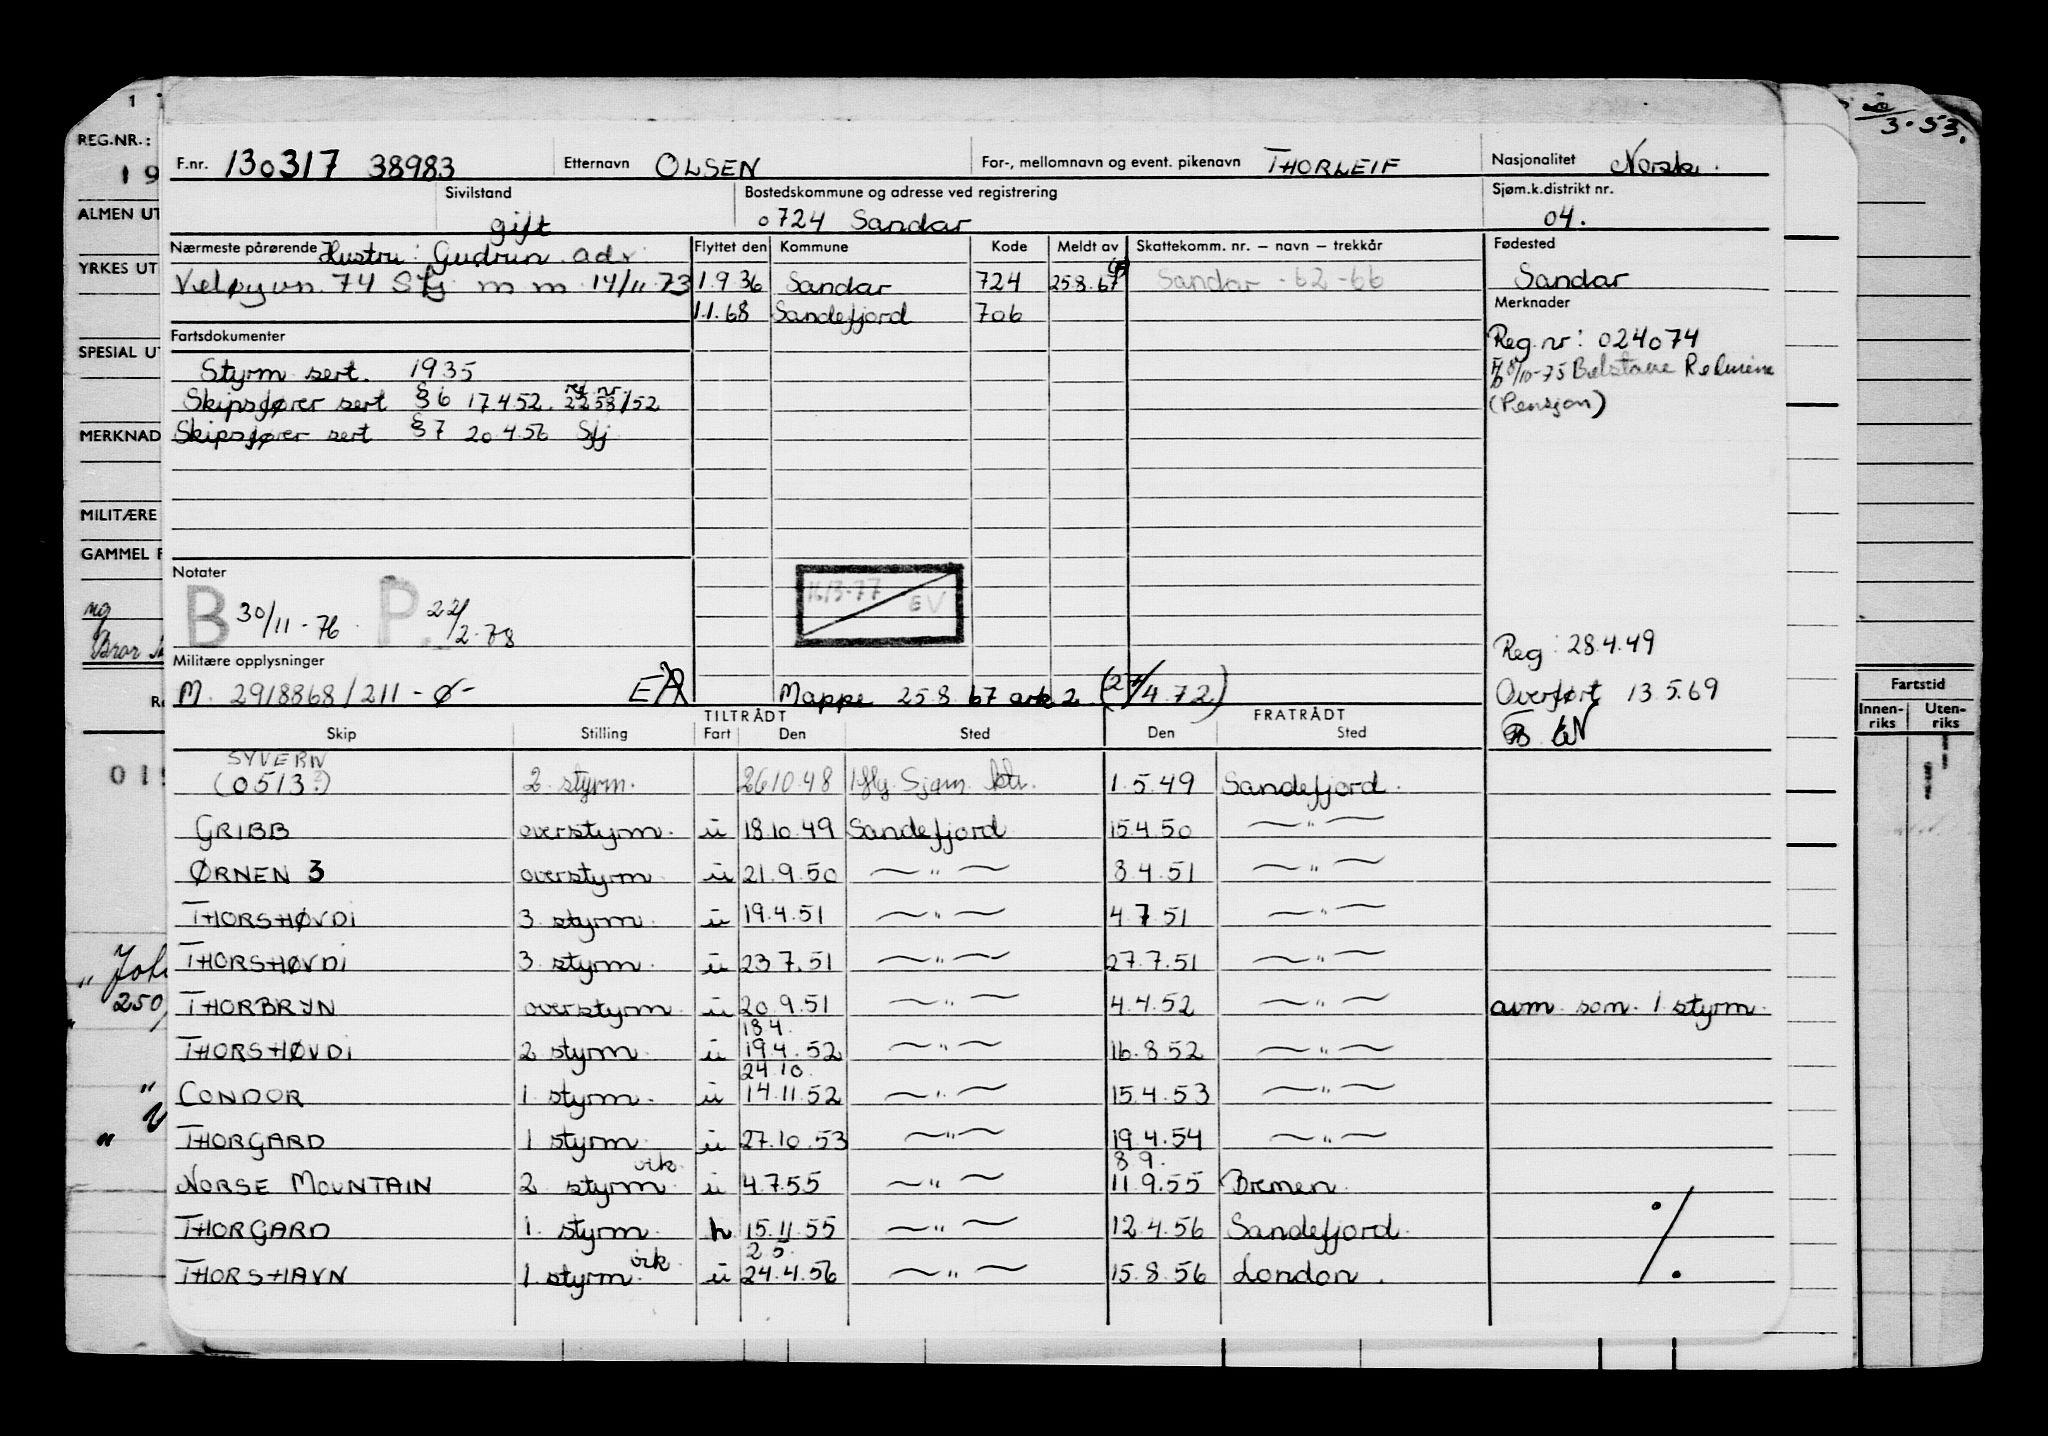 3.53.
1
REG.NR.:
19
ALMEN UT
YRKES UT
SPESIAL UT
MERKNAD
MILITÆRE
GAMMEL F
ng
Bror
250
Fartstid
Innen-riks Uten-riks
F.nr. 130317 38983 Etternavn OLSEN For-, mellomnavn og event. pikenavn THORLEIF Nasjonalitet Norsk.
Sivilstand gift Bostedskommune og adresse ved registrering 0724 Sandar Sjøm.k.distrikt nr. 04.
Nærmeste pårørende Hustru: Gudrun adr. Flyttet den Kommune Kode Meldt av Skattekomm. nr. – navn – trekkår Fødested
74 Sfj m m 14/11.73 1.9.36 Sandar 724 25.8.67 Sandar - 62 - 66 Sandar
1.1.68 Sandefjord 706 Merknader
Fartsdokumenter
Reg.nr: 024074
Styrm sert. 1935
Skipsfører sert §6 17.4.52. reg nr 2258/52
(Pensjon)
Skipsfører sert §7 20.4.56 Sfj
Notater
B 30/11-76 P. 22/2-78
16/3-77 EV
Reg: 28.4.49
Militære opplysninger
M. 2918868/211 -ø- Mappe 25.8.67 ark 2 (27/4.72) Overført 13.5.69
TILTRÅDT FRATRÅDT
Skip Stilling Fart Den Sted Den Sted
SYVERN
(0513?) 2. styrm. 26.10.48 Sjøm. ktr. 1.5.49 Sandefjord.
GRIBB overstyrm. u 18.10.49 Sandefjord 15.4.50 — " —
ØRNEN 3 overstyrm. u 21.9.50 — " — 8.4.51 — " —
THORSHØVDI 3 styrm. u 19.4.51 — " — 4.7.51 — " —
THORSHØVDI 3 styrm. u 23.7.51 — " — 27.7.51 — " —
THORBRYN overstyrm. u 20.9.51 — " — 4.4.52 — " — avm. som. 1 styrm.
18 4.
THORSHØVDI 2 styrm. u 19.4.52 — " — 16.8.52 — " —
24.10.
CONDOR 1. styrm. u 14.11.52 — " — 15.4.53 — " —
THORGARD 1 styrm. u 27.10.53 — " — 19.4.54 — " —
vik. 8 9.
NORSE MOUNTAIN 2 styrm. u 4.7.55 — " — 11.9.55 Bremen.
THORGARD 1. styrm. h 15.11.55 — " — 12.4.56 Sandefjord.
vik. 2 5.
THORSHAVN 1 styrm. u 24.4.56 — " — 15.8.56 London.